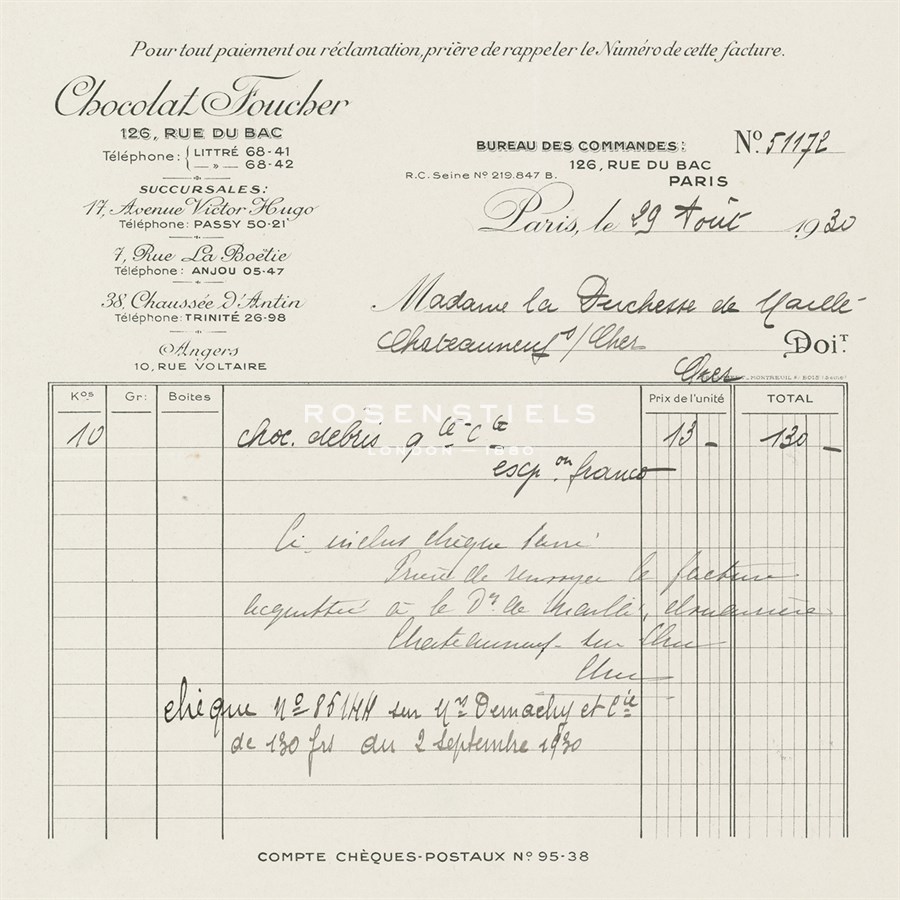 Pour tout paiement ou réclamation, prière de rappeler le Numéro de cette facture.
Chocolat Foucher
126, RUE DU BAC
Téléphone: { LITTRÉ 68-41
— » — 68-42
SUCCURSALES:
17, Avenue Victor Hugo
Téléphone: PASSY 50-21
7, Rue La Boëtie
Téléphone: ANJOU 05-47
38 Chaussée d'Antin
Téléphone: TRINITÉ 26-98
Angers
10, RUE VOLTAIRE
BUREAU DES COMMANDES:
126, RUE DU BAC
PARIS
R.C. Seine Nº 219.847 B.
Nº 51172
Paris, le 29 Août 1930
Madame la Duchesse de Maillé
Chateauneuf s/Cher
Doit.
Cher
Kos Gr: Boites Prix de l'unité TOTAL
ROSENSTIELS
LONDON — 1880
10 choc. debris qté cte 13 — 130 —
exp on franco
Ci-inclus chèque barré
Prière de renvoyer la facture
acquittée à la Dsse de Maillé, douairière
Chateauneuf-sur Cher
Cher
chèque Nº sur Mrs Demachy et Cie
de 130 frs du 2 septembre 1930
COMPTE CHÈQUES-POSTAUX Nº 95-38